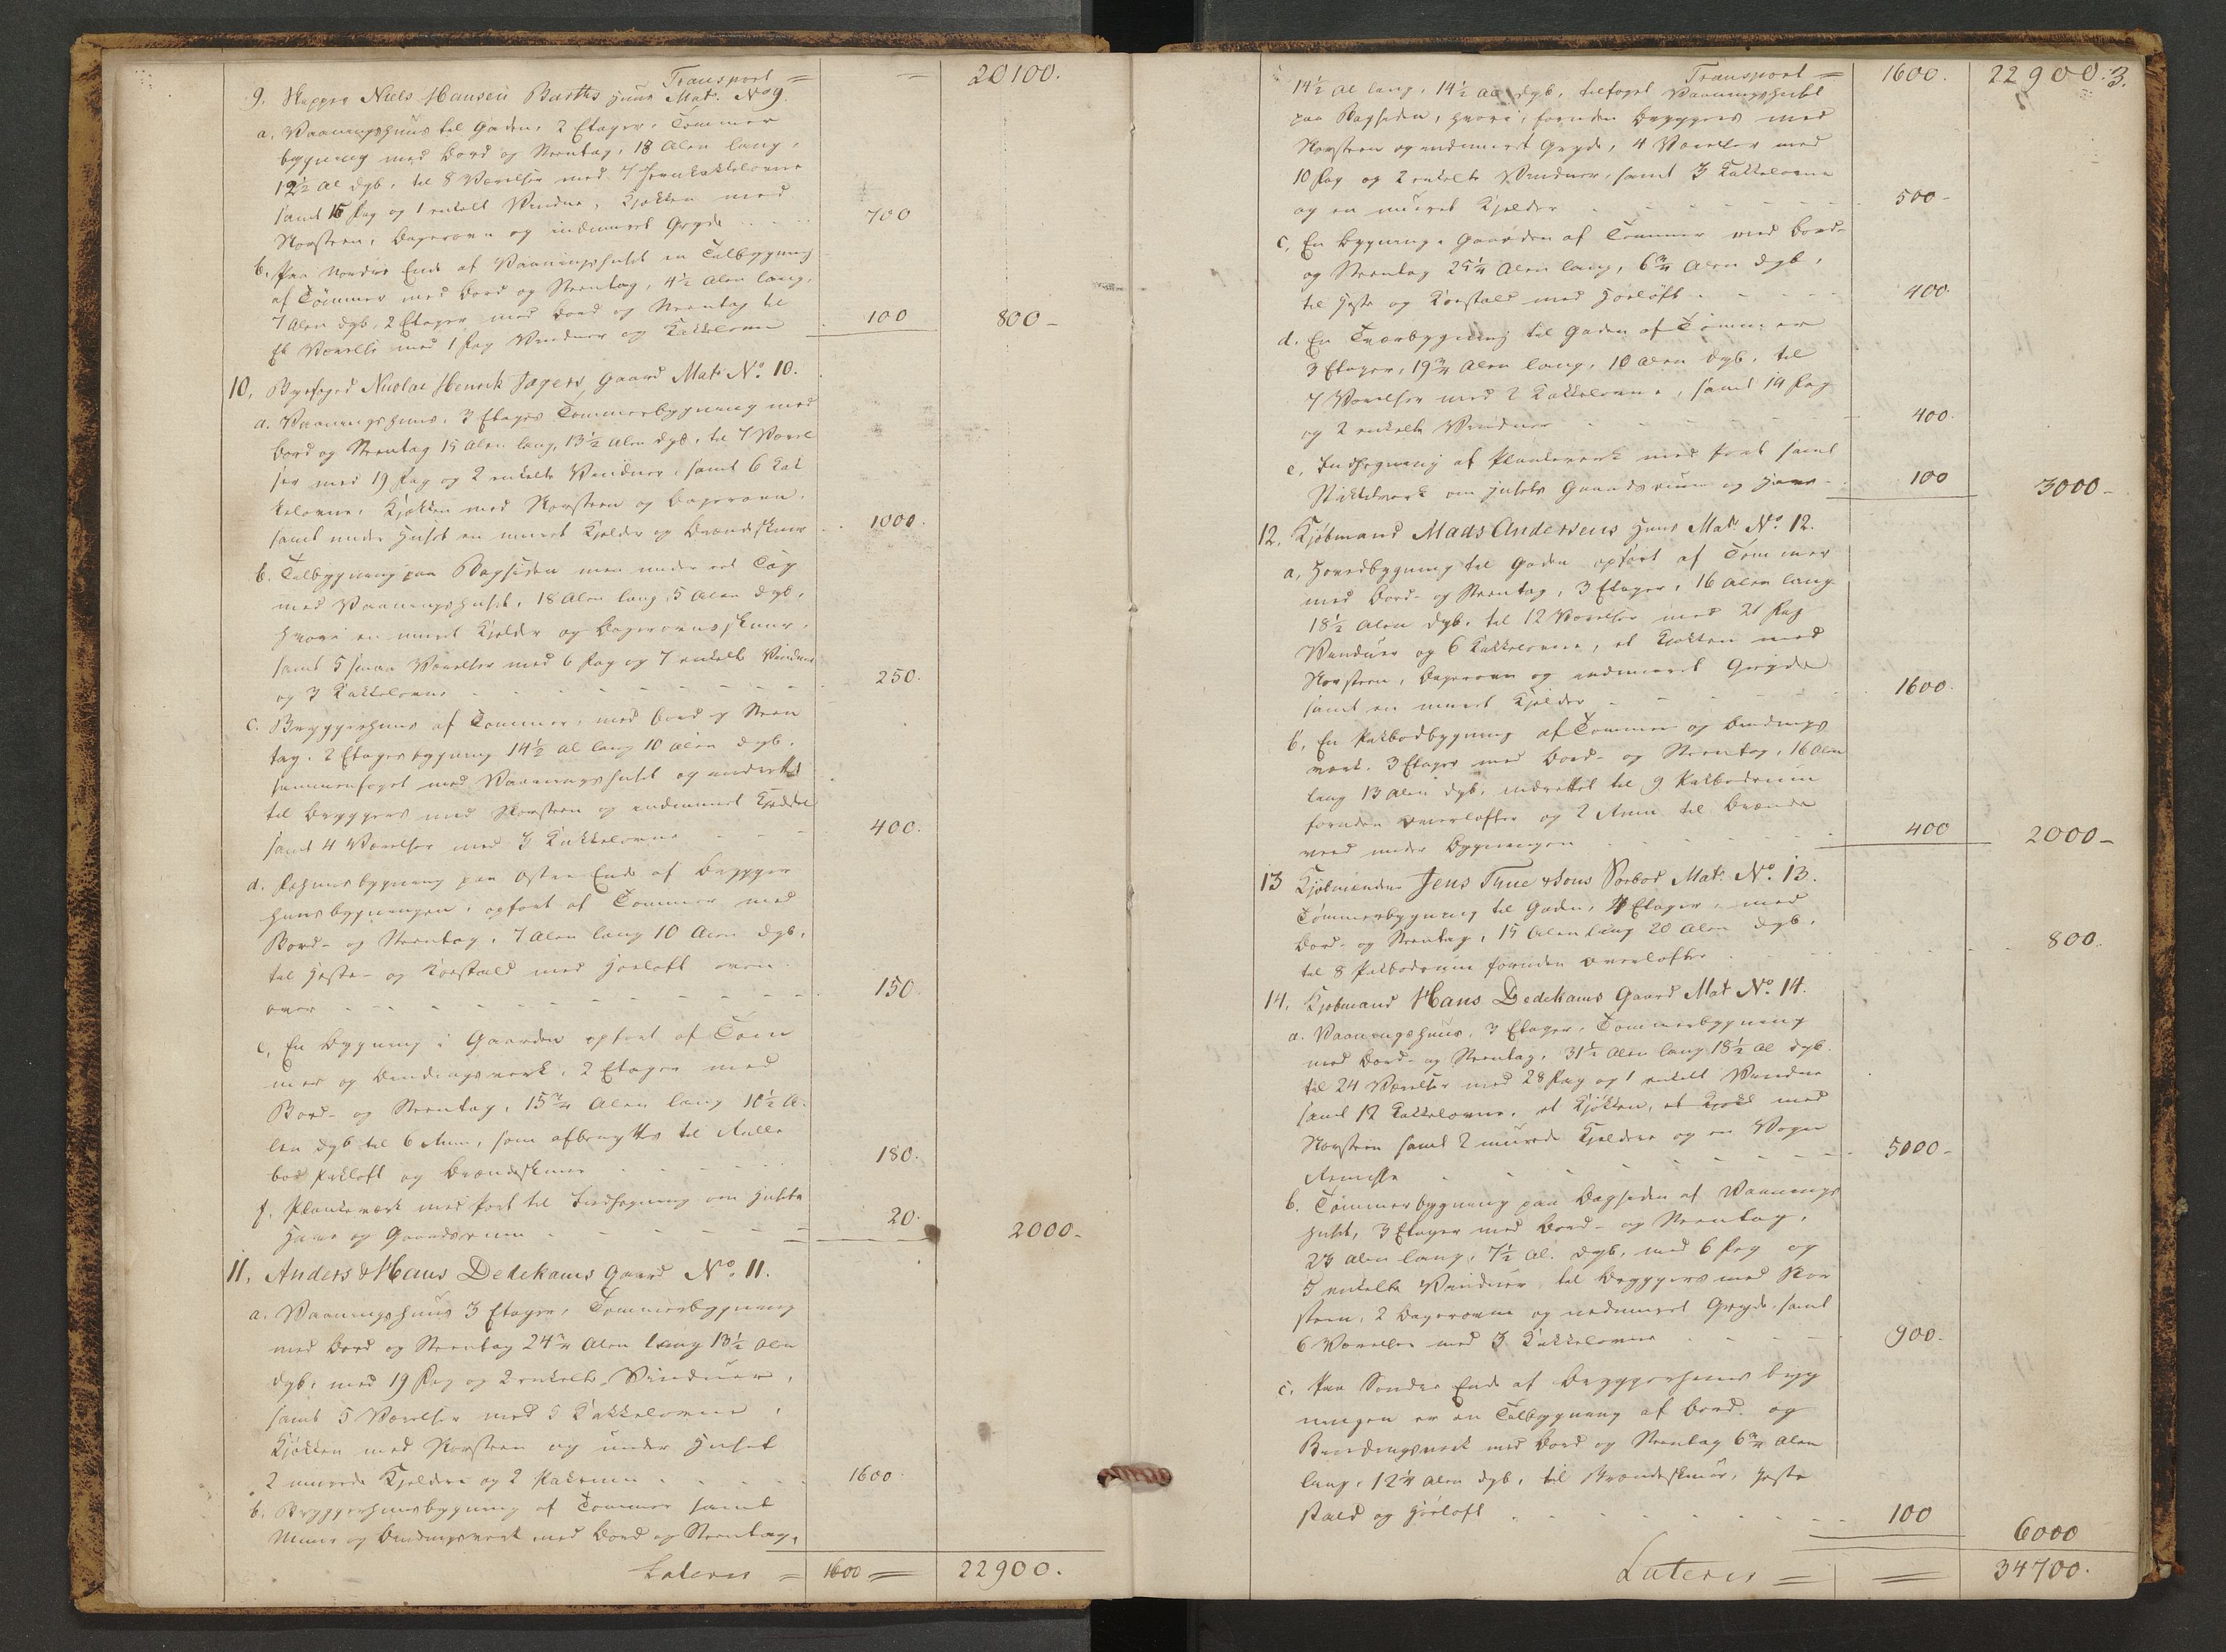 Transport = = 20100.
9. Skipper Niels Hansen Barths Huus Mat: No 9.
a. Vaaningshuus til Gaden, 2 Etager, Tømmer
bygning med Bord og Steentag, 18 Alen lang,
12½ Al dyb, til 8 Værelser med 7 Jernkakkelovne
samt 16 Fag og 1 enkelt Vindue, Kjøkken med
Skorsteen, Bagerovn og indmuret Gryde 700
b. Paa nordre Ende af Vaaningshuset en Tilbygning
af Tømmer med Bord og Steentag, 4½ Alen lang,
7 Alen dyb, 2 Etager med Bord og Steentag til
Et Værelse med 1 Fag Vinduer og Kakkelovn 100 800 -
10. Byefoged Nicolai Henrik Jagers Gaard Mat: No. 10.
a. Vaaningshuus, 3 Etages Tømmerbygning med
Bord og Steentag 15 Alen lang, 13½ Alen dyb, til 7 Værel
ser med 19 Fag og 2 enkelte Vinduer, samt 6 Kak
kelovne, Kjøkken med Skorsteen og Bagerovn,
samt under Huset en muret Kjelder og Brændeskuur 1000.
b. Tilbygning paa Bagsiden men under eet Tag
med Vaaningshuset, 18 Alen lang, 5 Alen dyb,
hvori en muret Kjelder og Bagerovnsskuur,
samt 5 smaa Værelser med 6 Fag og 7 enkelte Vinduer
og 3 Kakkelovne 250.
c. Bryggerhuus af Tømmer, med Bord og Steen
tag, 2 Etages bygning 14½ Al lang 10 Alen dyb,
sammenføyet med Vaaningshuset og indrettet
til Bryggers med Skorsteen og indmuret Kjeddel
samt 4 Værelser med 3 Kakkelovne 400.
d. Fæhuusbygning paa østre Ende af Brygger
huusbygningen, opført af Tømmer med
Bord- og Steentag, 7 Alen lang 10 Alen dyb,
til Heste- og Koestald med Høeloft oven
over 150.
e. En Bygning i Gaarden opført af Tøm
mer og Bindingsverk, 2 Etager med
Bord- og Steentag, 15¾ Alen lang 10½ A-
len dyb til 6 Rum, som afbenyttes til Rulle
bod Pakloft og Brændeskuur 180.
f. Plankeværk med Port til Indhegning om Husets
Have og Gaardsrum 20. 2000-
11. Anders & Hans Dedekams Gaard No. 11.
a. Vaaningshuus 3 Etager, Tømmerbygning
med Bord og Steentag 24¾ Alen lang 13½ Alen
dyb, med 19 Fag og 2 enkelte Vinduer,
samt 5 Værelser med 5 Kakkelovne,
Kjøkken med Skorsteen og under Huset
2 murede Kjeldere og 2 Pakrum 1600.
b. Bryggerhuusbygning af Tømmer samt
Muur og Bindingsverk med Bord og Steentag,
Lateris = 1600 = 22900.
Transport = 1600. 22900. 3.
14½ Al lang, 14½ Al dyb, tilføyet Vaaningshuset
paa Bagsiden, hvori, foruden Bryggers med
Skorsteen og indmuret Gryde, 4 Værelser med
10 Fag og 2 enkelte Vinduer, samt 3 Kakkelovne
og en muret Kjelder 500-
c. En Bygning i Gaarden af Tømmer med Bord-
og Steentag 25¼ Alen lang, 6¾ Alen dyb,
til Heste og Koestald med Høeloft 400.
d. En Tværbygning til Gaden af Tømmer
3 Etager, 19¾ Alen lang, 10 Alen dyb, til
7 Værelser med 2 Kakkelovne, samt 14 Fag
og 2 enkelte Vinduer 400.
e. Indhegning af Plankeverk med Port samt
Stakitverk om Husets Gaardsrum og Have 100 3000-
12. Kjøbmand Mads Andersens Huus Mat: No. 12.
a. Hovedbygning til Gaden opført af Tømmer
med Bord- og Steentag, 3 Etager, 16 Alen lang
18½ Alen dyb, til 12 Værelser med 21 Fag
Vinduer og 6 Kakkelovne, et Kjøkken med
Skorsteen, Bagerovn og indmuret Gryde
samt en muret Kjelder 1600.
b. En Pakbodbygning af Tømmer og Bindings
verk, 3 Etager med Bord- og Steentag, 16 Alen
lang 13 Alen dyb, indrettet til 9 Pakbodrum
foruden Overlofter og 2 Rum til Brænde
veed under Bygningen 400 2000-
13 Kjøbmændene Jens Thue & Søns Søebod Mat: No. 13.
Tømmerbygning til Gaden, 4 Etager, med
Bord- og Steentag, 15 Alen lang 20 Alen dyb,
til 8 Pakbodrum foruden Overlofter 800.
14. Kjøbmand Hans Dedekams Gaard Mat No. 14.
a. Vaaningshuus, 3 Etager, Tømmerbygning
med Bord- og Steentag, 31½ Alen lang 18½ Al dyb
til 24 Værelser med 28 Fag og 1 enkelt Vindue
samt 12 Kakkelovne, et Kjøkken, et Kjøkk med
Skorsteen samt 2 murede Kjeldere og en Vogn
Remisse 5000-
b. Tømmerbygning paa Bagsiden af Vaanings
huset, 3 Etager med Bord- og Steentag,
23 Alen lang, 7½ Al. dyb, med 6 Fag og
5 enkelte Vinduer, til Bryggers med Skor
steen, 2 Bagerovne og indmuret Gryde, samt
6 Værelser med 3 Kakkelovne 900.
c. Paa Søndre Ende af Bryggerhuus byg
ningen er en Tilbygning af Bord- og
Bindingsverk med Bord og Steentag 6¾ Alen
lang, 12¼ Alen dyb, til Brændeskuur, Heste
stald og Høeloft 100 6000
Lateris = = 34700.